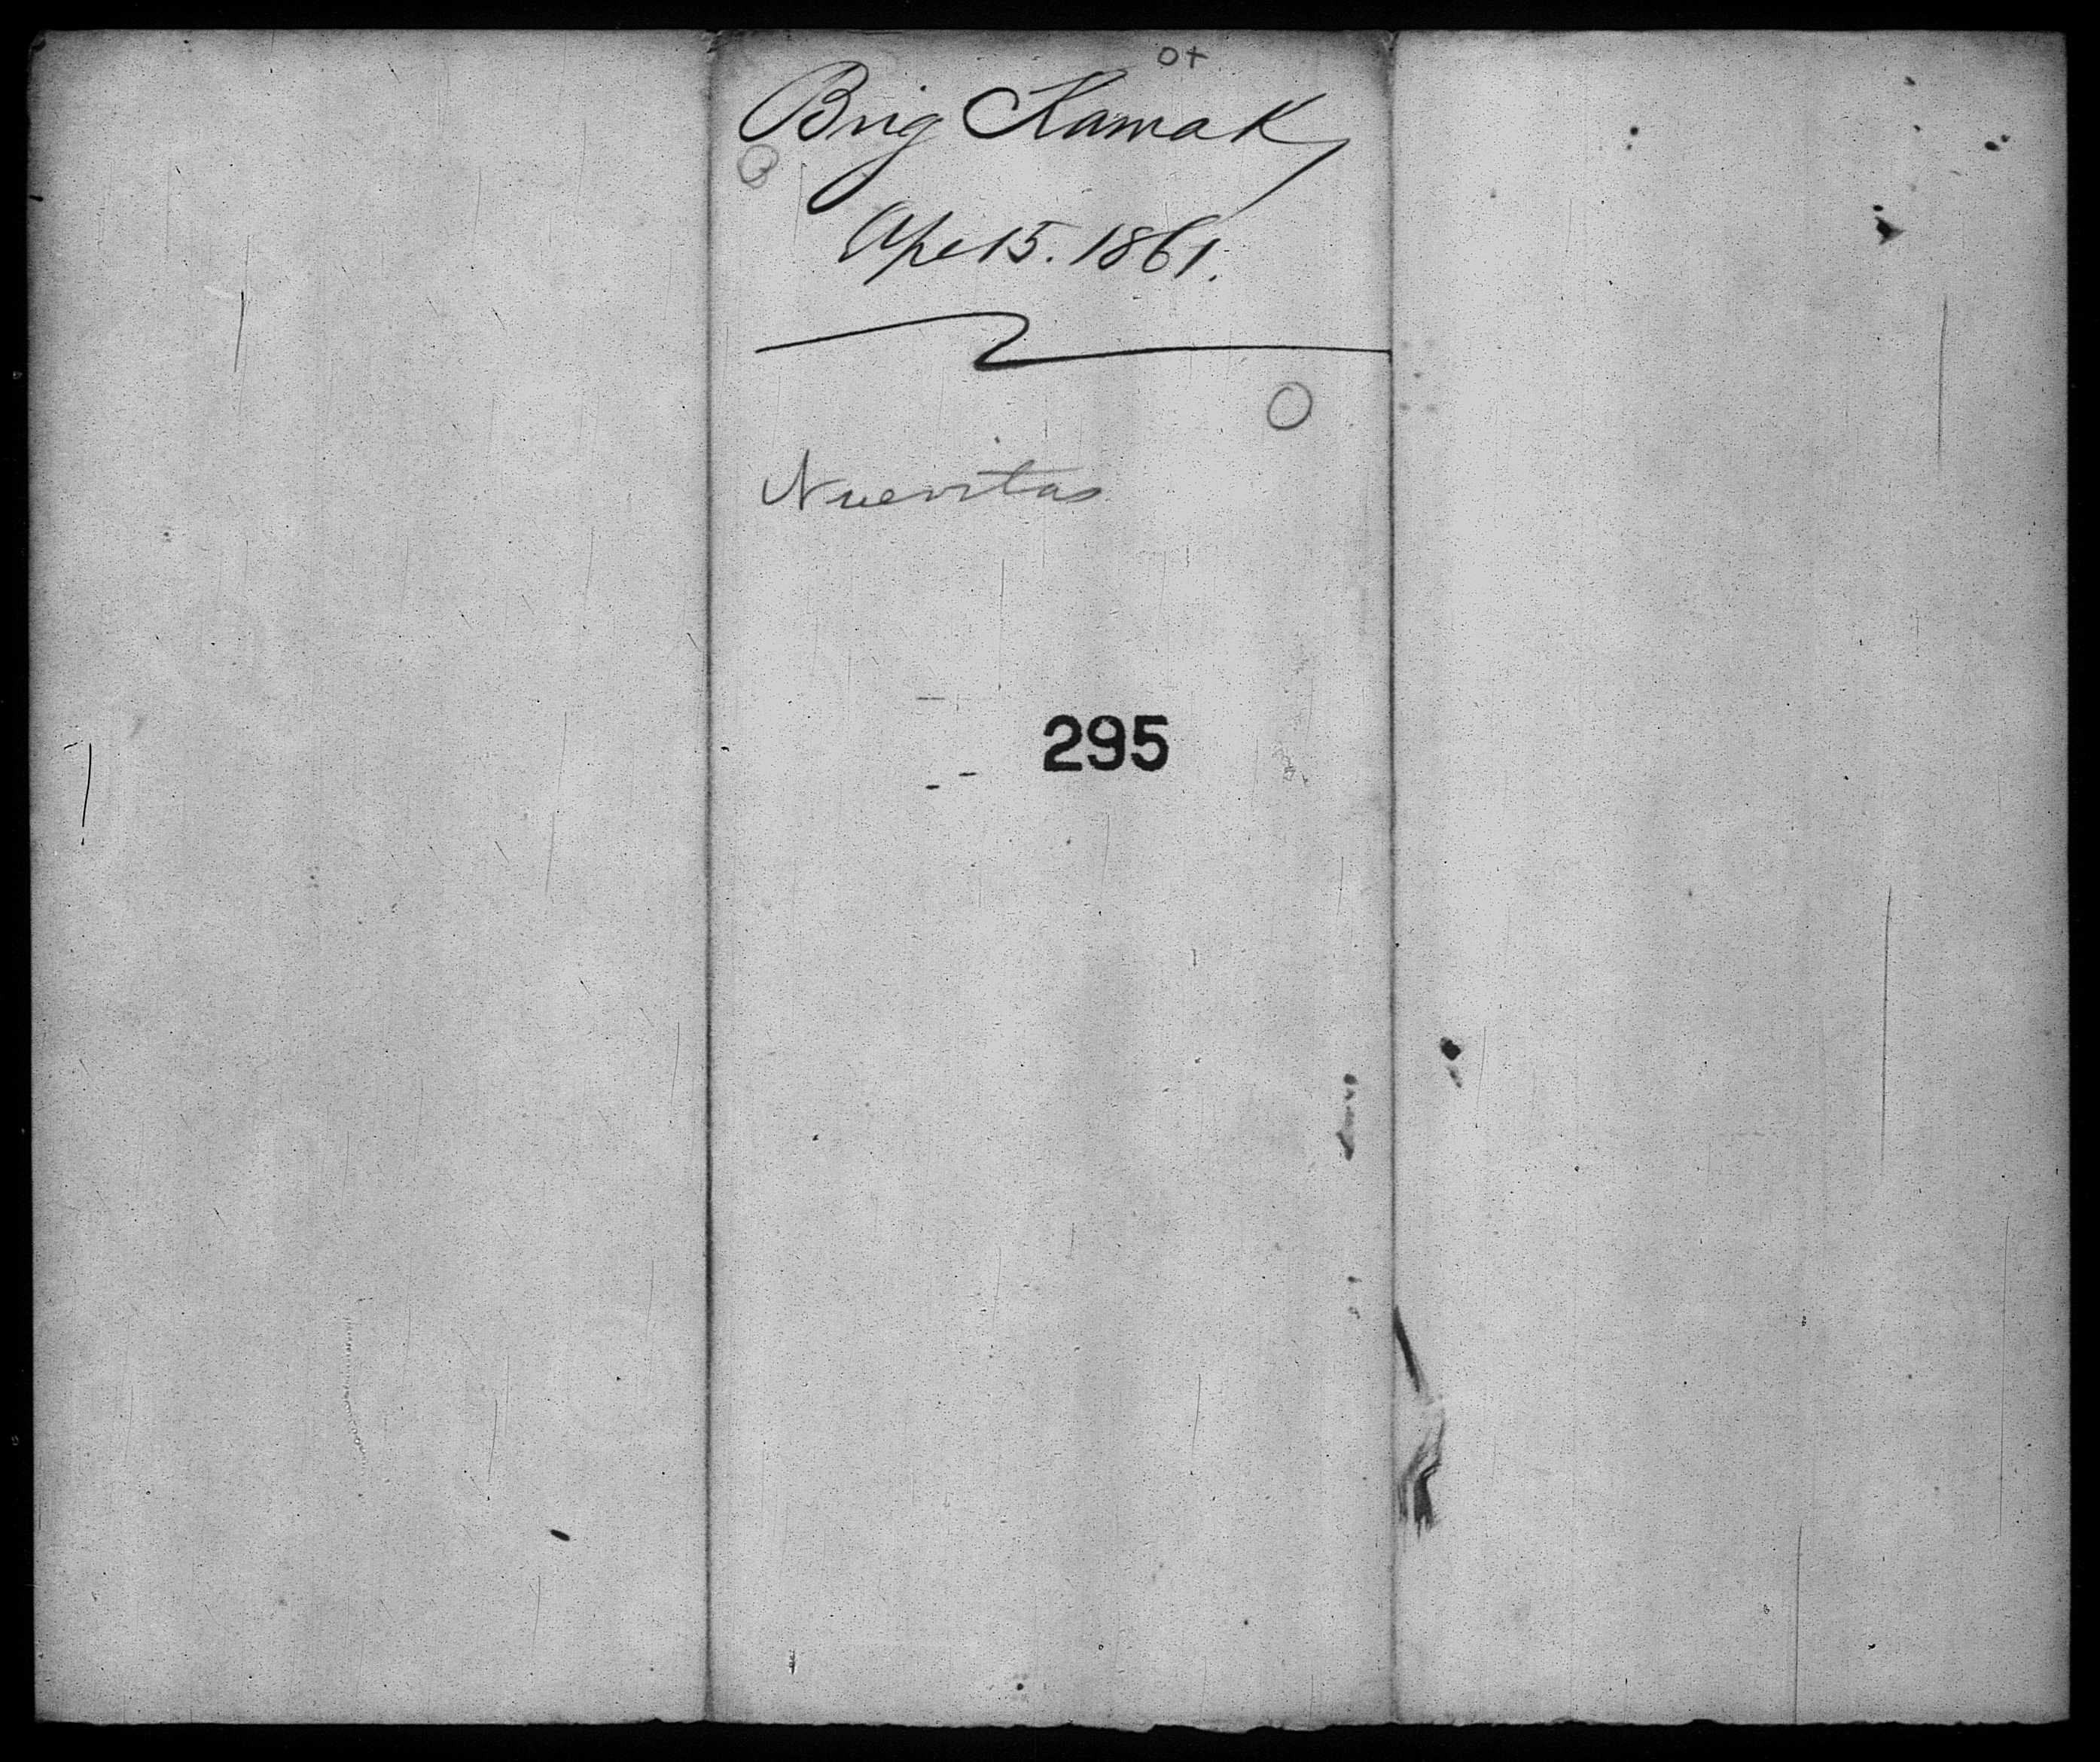 O+
Brig Kamak
Ape 15. 1861.
O
Nuevitas
295